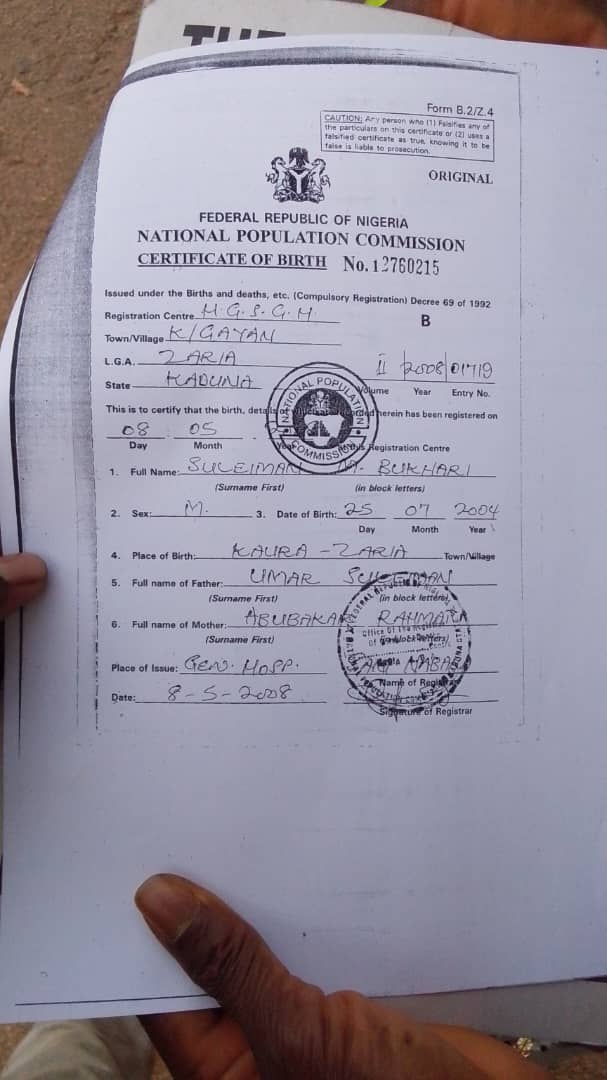 Form B.2/Z.4
CAUTION: Any person who (1) Falsifies any of
the particulars on this certificate or (2) uses a
falsified certificate as true, knowing it to be
false is liable to prosecution.
ORIGINAL
FEDERAL REPUBLIC OF NIGERIA
NATIONAL POPULATION COMMISSION
CERTIFICATE OF BIRTH No. 12760215
Issued under the Births and deaths, etc. (Compulsory Registration) Decree 69 of 1992
Registration Centre H.G.S.G.H. B
Town/Village K/GAYAN
L.G.A. ZARIA II 2008
State KADUNA Volume Year Entry No.
This is to certify that the birth, details herein has been registered on
08 05
Day Month Registration Centre
1. Full Name: SULEIMAN BUKHARI
(Surname First) (in block letters)
2. Sex: M. 3. Date of Birth: 25 07 2004
Day Month Year
4. Place of Birth: KAURA - ZARIA Town/Village
5. Full name of Father: UMAR SULEIMAN
(Surname First) (in block letters)
6. Full name of Mother: ABUBAKAR
(Surname First) (in block letters)
Place of Issue: GEN. HOSP.
Name of Registrar
Date: 8-5-2008
Signature of Registrar
NATIONAL POPULATION COMMISSION